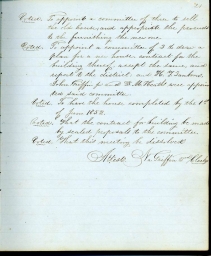 Voted. To appoint a committee of three to sell
the old house, and appropriate the proceeds
to the furnishing the new one.
Voted. To appoint a committee of 3 to draw a
plan for a new house, contract for the
building thereof, accept the same, and
report to the district and
John Griffin Jr and were appoin
ted said committee.
Voted. To have the house completed by the 1st
of June 1853.
Voted. That the contract for building be made
by sealed proposals to the committee.
Voted. That this meeting be dissolved.
N. Griffin Clerk